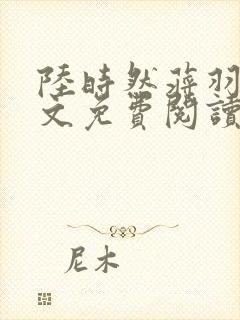 陸時然蒋羽
文免費閱讀
尼木